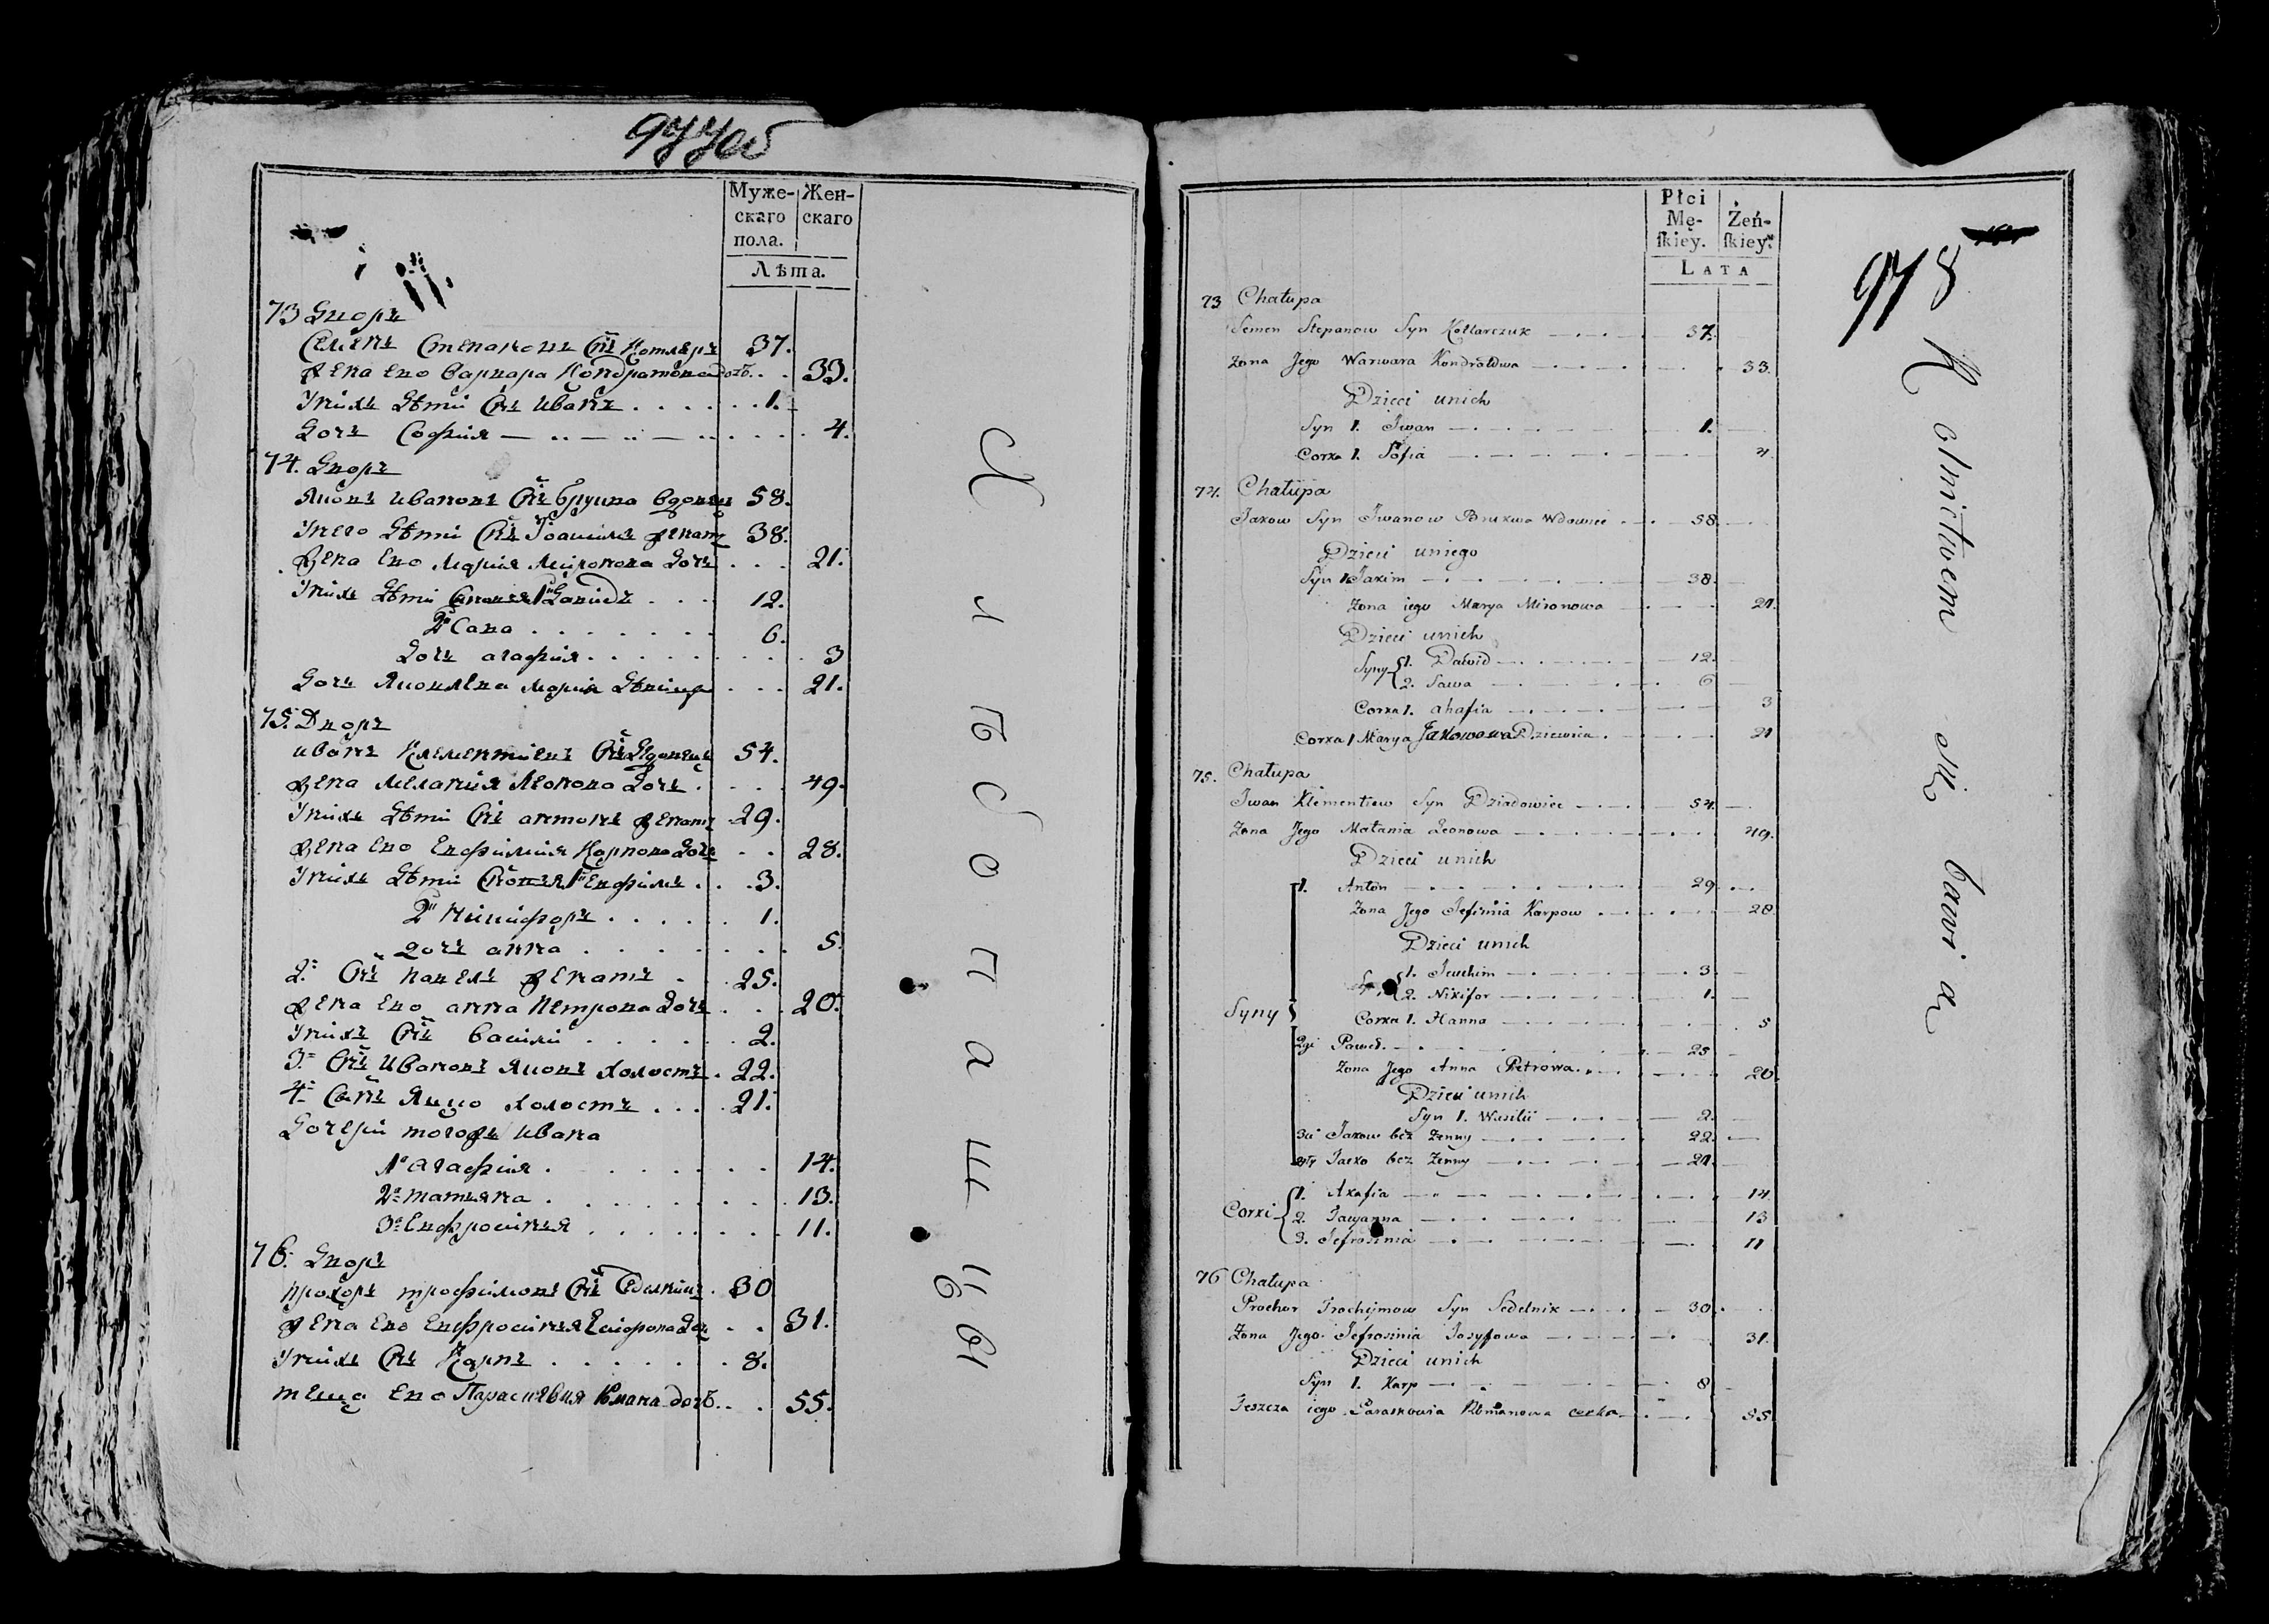 977об
Муже-
скаго
пола.
Жен-
скаго
Лѣта.
73 Дворъ
Семенъ Степановъ Снъ Котляръ 37.
Жена Его Варвара Кондратова дочь . . 33.
У нихъ Дѣти Снъ Иванъ . . . . . . 1.
Дочь София — . . — . . — . . . . 4.
74. Дворъ
Яковъ Ивановъ Снъ Бруква Вдовецъ 58.
У него Дѣти Снъ Иоакимъ Женатъ 38.
Жена Его Мария Миронова Дочь . . . 21.
У нихъ Дѣти 1й Давидъ . . . 12.
2й Сава . . . . . . . 6.
Дочь Агафия . . . . . . . 3
Дочь Яковлева Мария Дѣвица . . . 21.
75. Дворъ
Иванъ Климентиевъ Снъ 54.
Жена Мелания Леонова Дочь . . . . 49.
У нихъ Дѣти Снъ Антонъ Женатъ 29.
Жена Его Евфимия Карпова Дочь . . 28.
У нихъ Дѣти 1й Евфимъ . . . 3.
2й Никифоръ . . . . . . 1.
Дочь Анна . . . . . . . . 5.
2й Снъ Павелъ Женатъ . . . 25.
Жена Его Анна Петрова Дочь . . . 20.
У нихъ Снъ Василий . . . . . . 2.
3й Снъ Ивановъ Яковъ Холостъ . 22.
4й Снъ Яцко Холостъ . . . 21.
Дочери тогожъ Ивана
1я Агафия . . . . . . . . 14.
2я Татьяна . . . . . . . . 13.
3я Евфросиния . . . . . . . 11.
76. Дворъ
Прохоръ Трофимовъ Снъ Седилникъ . 30
Жена Его Евфросиния . . 31.
У нихъ Снъ Карпъ . . . . . . . 8.
Теща Его Параскѣвия Романа дочь . . . 55.
Хлѣбопашцы
Płci
Mę-
ſkiey.
Żeń-
ſkiey.
LATA
978
73 Chałupa
Semen Stepanow Syn Kotlarczuk — . — . — 37.
Zona Jego Warwara Kondratowa — . — . — 33.
Dzieci unich
Syn 1. Iwan — . — . — 1.
Corka 1. Sofia — . — . — 4.
74. Chałupa
Jakow Syn Iwanow Brukwa Wdowiec . — . — 58.
Dzieci uniego
Syn 1 Jakim — . — . — 38.
Zona iego Marya Mironowa — . — 21.
Dzieci unich
Syny 1. Dawid — . — . — 12.
2. Sawa — . — . — 6
Corka 1. Ahafia — . — . — 3
Corka 1 Marya Jakowowa Dziewica . — . — 21
75. Chałupa
Iwan Klementiew Syn Dziadowiec — . — 54.
Zona Jego Małania Leonowa — . — . — 49.
Dzieci unich
1. Anton — . — . — 29.
Zona Jego Jefimia Karpow . — . — 28.
Dzieci unich
1. Jewchim — . — . — 3.
2. Nikifor — . — . — 1.
Corka 1. Hanna — . — . — 5
Syny
2gi Paweł. — . — . — 25
Zona Jego Anna Petrowa . — . — 20.
Dzieci unich
Syn 1. Wasilii — . — 2.
3ci Jakow bez Zenny — . — 22.
4ty Jacko bez Zenny — . — 21.
Corki 1. Akafia — . — . — 14.
2. — . — . — 13
3. Jefrosinia — . — . — 11
76 Chałupa
Prochor Trochymow Syn Sedelnik — . — 30.
Zona Jego Jefrosinia Josyfowa — . — 31.
Dzieci unich
Syn 1. Karp — . — . — 8
Teszcza iego Paraskowia Romanowa corka — . — 55
Rolnictwem się bawią